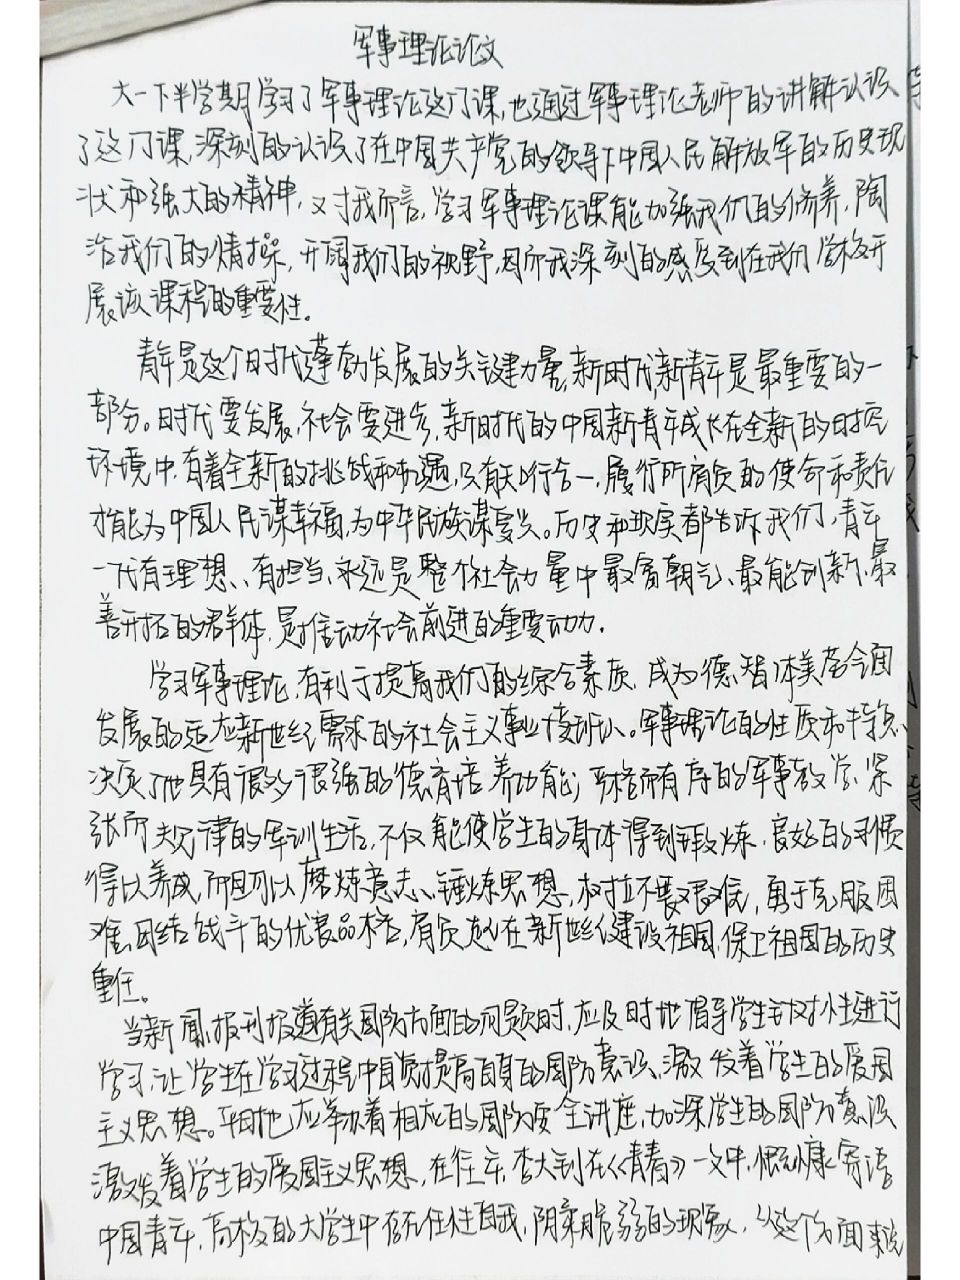 军事理论论文
大一下半学期学习了军事理论这门课,也通过军事理论老师的讲解认识
了这门课,深刻的认识了在中国共产党的领导下中国人民解放军的历史现
状和强大的精神,又对我而言,学习军事理论课能加强我们的修养,陶
冶我们的情操,开阔我们的视野,因而我深刻的感受到在我们学校开
展该课程的重要性。
青年是这个时代蓬勃发展的关键力量,新时代新青年是最重要的一
部分。时代要发展,社会要进步,新时代的中国新青年成长在全新的时空
环境中,有着全新的挑战和机遇,只有知行合一,履行所肩负的使命和责任
才能为中国人民谋幸福,为中华民族谋复兴。历史和现实都告诉我们,青年
一代有理想、有担当,永远是整个社会力量中最富朝气、最能创新、最
善开拓的群体,是推动社会前进的重要动力。
学习军事理论,有利于提高我们的综合素质,成为德智体美劳全面
发展的适应新世纪需求的社会主义事业接班人。军事理论的性质和特点,
决定了他具有很多很强的德育培养功能;严格而有序的军事教学,紧
张而规律的军训生活,不仅能使学生的身体得到锻炼,良好的习惯
得以养成,而且可以磨炼意志、锤炼思想,树立不畏艰难,勇于克服困
难,团结战斗的优良品格,肩负起在新世纪建设祖国,保卫祖国的历史
重任。
当新闻,报刊报道有关国防方面的问题时,应及时地倡导学生针对性进行
学习,让学生在学习过程中自觉提高自身的国防意识,激发着学生的爱国
主义思想。平时也应举办着相应的国防安全讲座,加深学生的国防意识
激发着学生的爱国主义思想,在往年,李大钊在《青春》一文中,慷慨寄语
中国青年,高校的大学生中存在任性自我,阴柔脆弱的现象,从这个方面来说